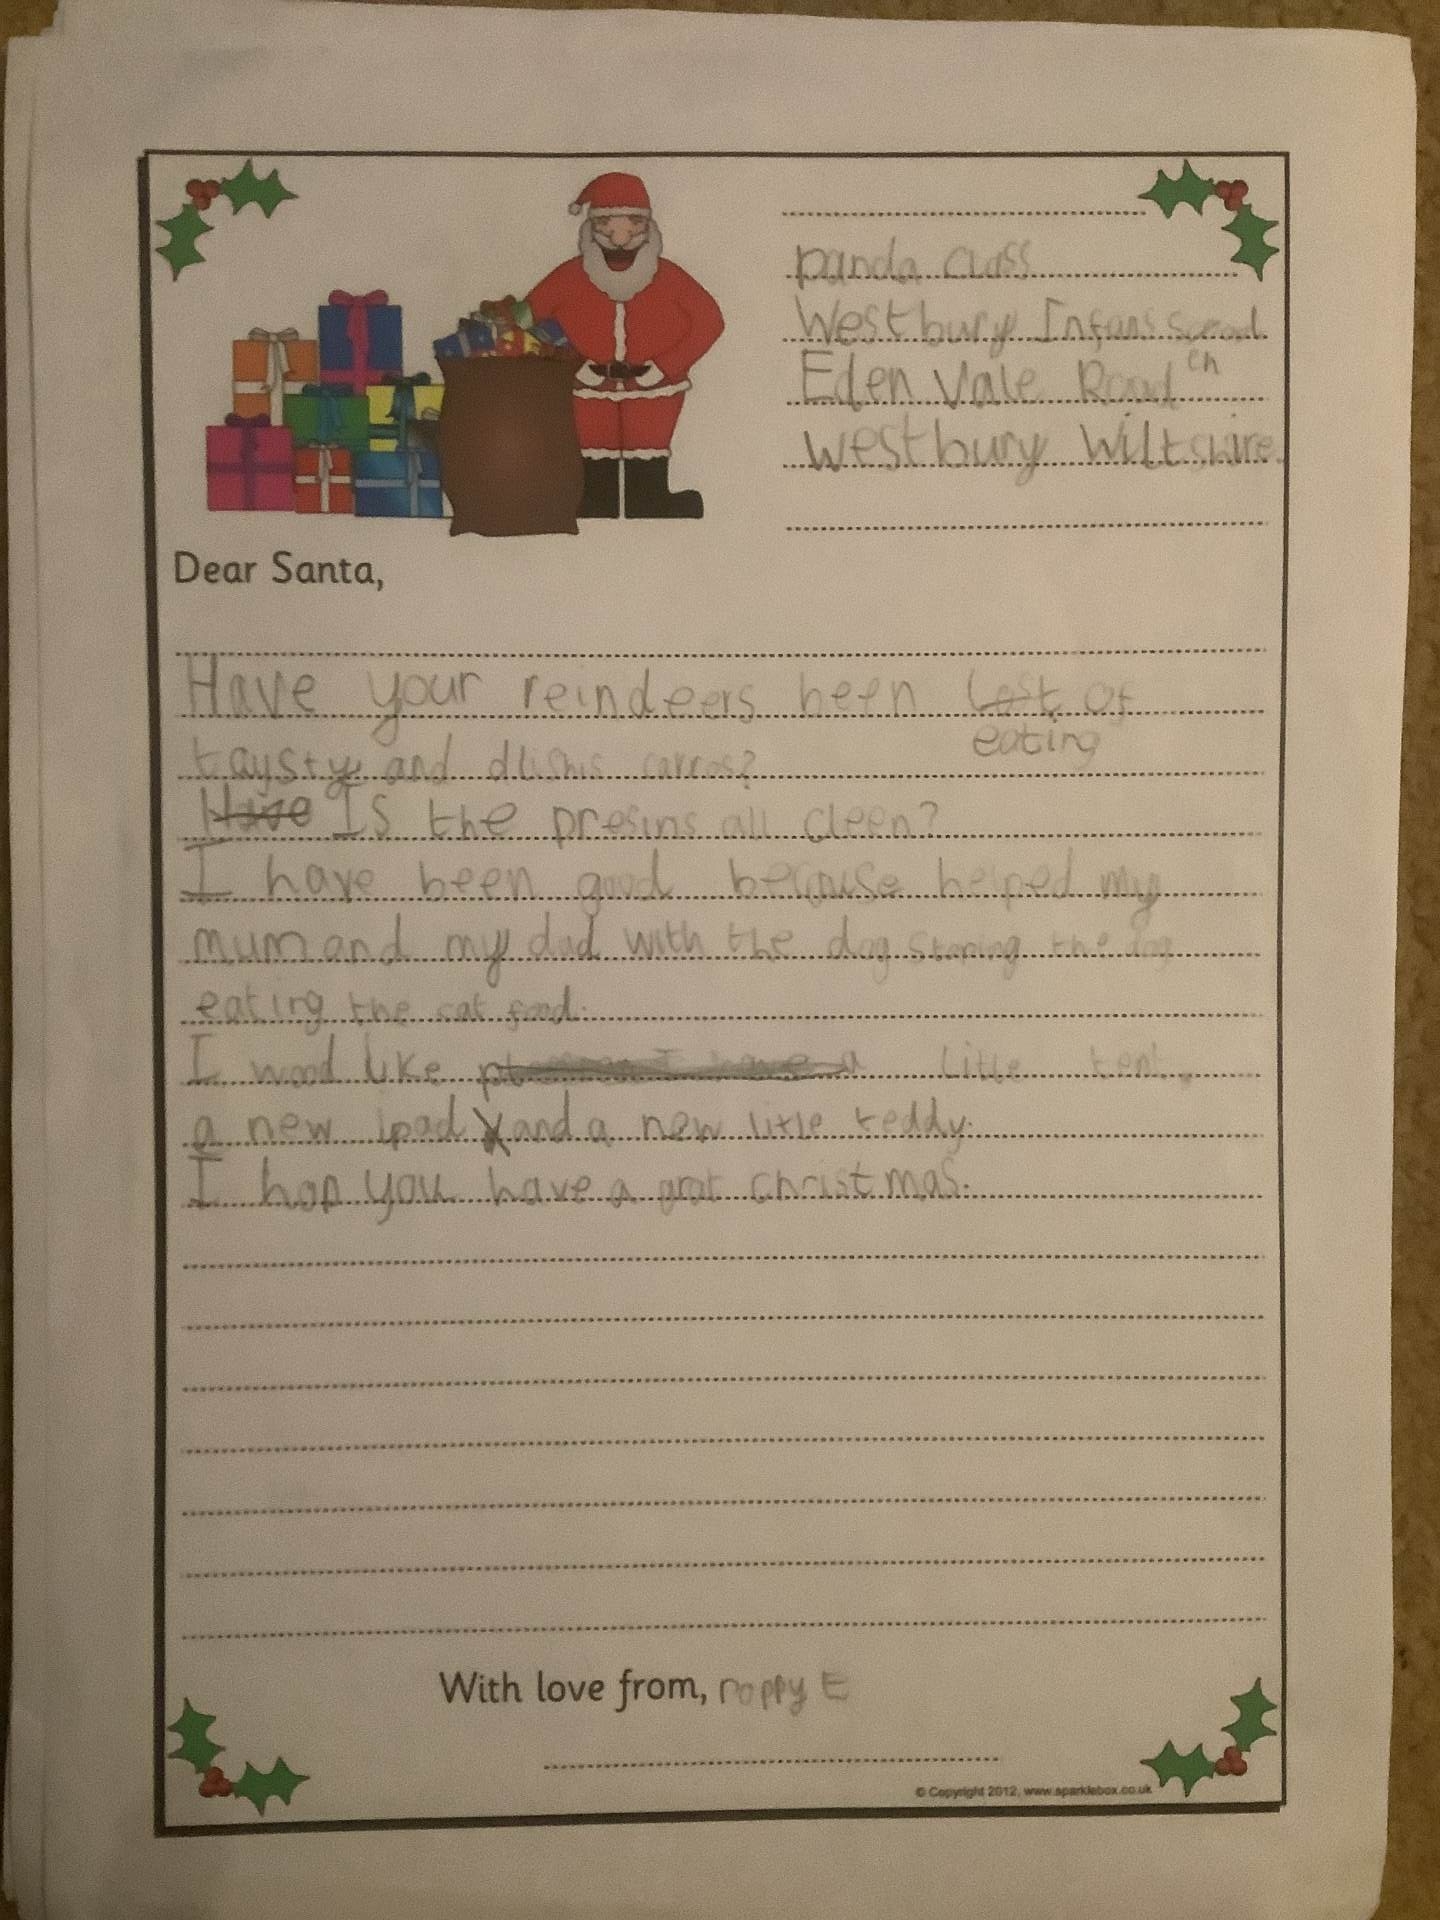 panda class
Westbury Infans
Eden Vale Road
en
westbury Wiltshire.
Dear Santa,
Have your reindeers been of
eating
taysty and dlishis carros?
Have Is the presins all cleen?
I have been good because helped my
mum and my dad with the dog stoping the dog
eating the cat food.
I wood like a little tent.
a new ipad and a new litle teddy.
I hop you have a grat christmas.
With love from, poppy E
© Copyright 2012, www.sparklebox.co.uk